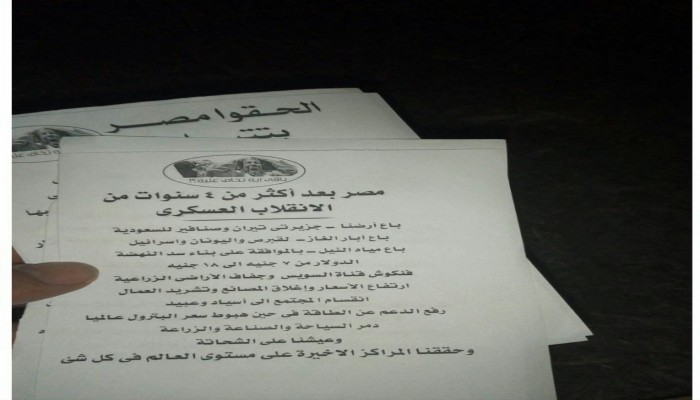 الحقوا مصر
باقى ايه نخاف عليه ؟!
مصر بعد أكثر من ٤ سنوات من
الانقلاب العسكرى
باع أرضنا – جزيرتى تيران وصنافير للسعودية
باع آبار الغاز – لقبرص واليونان واسرائيل
باع مياه النيل – بالموافقة على بناء سد النهضة
الدولار من ٧ جنيه الى ١٨ جنيه
فنكوش قناة السويس وجفاف الأراضى الزراعية
ارتفاع الاسعار وإغلاق المصانع وتشريد العمال
انقسام المجتمع الى أسياد وعبيد
رفع الدعم عن الطاقة فى حين هبوط سعر البترول عالميا
دمر السياحة والصناعة والزراعة
وعيشنا على الشحاتة
وحققنا المراكز الاخيرة على مستوى العالم فى كل شئ